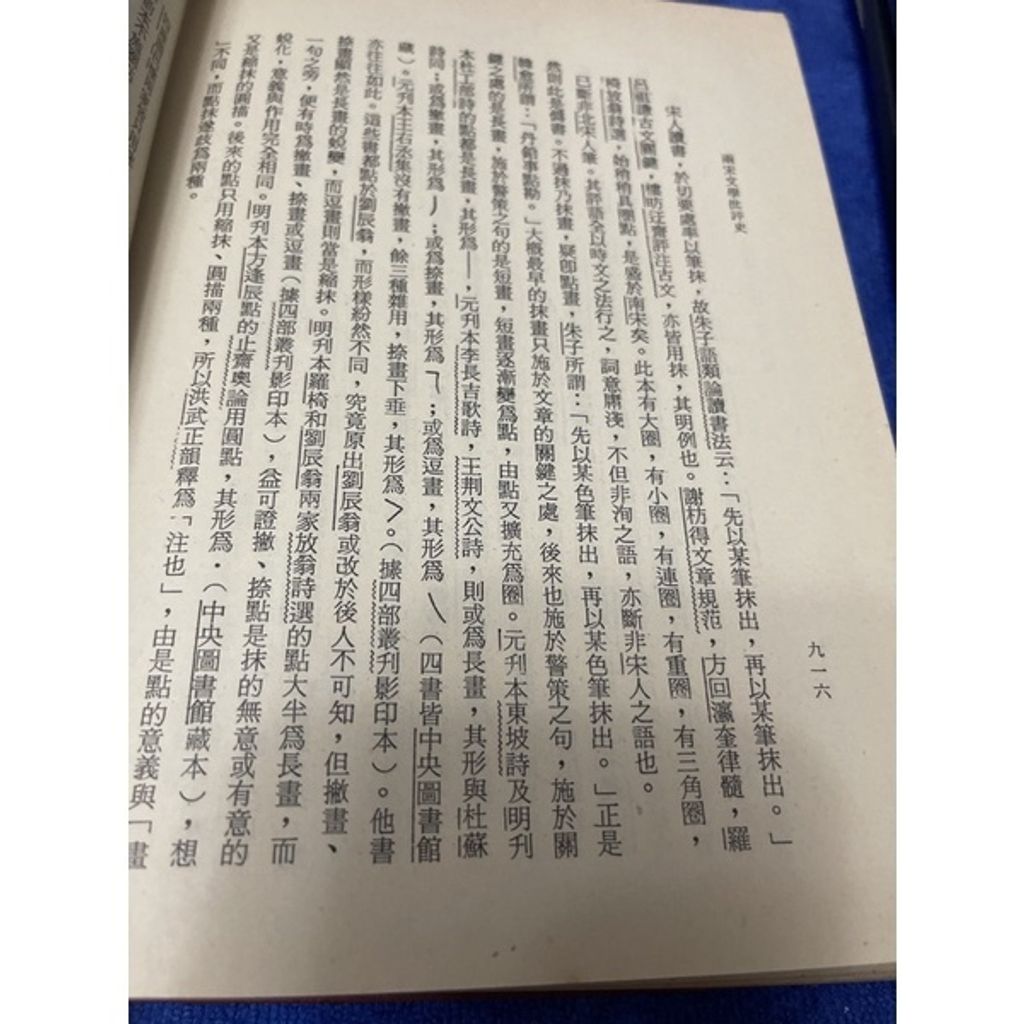 兩宋文學批評史
九一六
宋人讀書，於切要處率以筆抹，故朱子語類論讀書法云：「先以某筆抹出，再以某筆抹出。」
呂祖謙古文關鍵，樓昉迂齋評注古文，亦皆用抹，其明例也。謝枋得文章規范，方回瀛奎律髓，羅
椅放翁詩選，始稍稍具圈點，是盛於南宋矣。此本有大圈，有小圈，有連圈，有重圈，有三角圈，
已斷非北宋人筆。其評語全以時文之法行之，詞意庸淺，不但非洵之語，亦斷非宋人之語也。
然則此是僞書。不過抹乃抹畫，疑卽點畫，朱子所謂：「先以某色筆抹出，再以某色筆抹出。」正是
韓愈所謂：「丹鉛事點勘。」大概最早的抹畫只施於文章的關鍵之處，後來也施於警策之句，施於關
鍵之處的是長畫，施於警策之句的是短畫，短畫逐漸變爲點，由點又擴充爲圈。元刋本東坡詩及明刋
本杜工部詩的點都是長畫，其形爲——，元刋本李長吉歌詩，王荆文公詩，則或爲長畫，其形與杜蘇
詩同；或爲撇畫，其形爲丿；或爲捺畫，其形爲㇕；或爲逗畫，其形爲㇏（四書皆中央圖書館
藏）。元刋本王右丞集沒有撇畫，餘三種雜用，捺畫下垂，其形爲＞。（據四部叢刋影印本）。他書
亦往往如此。這些書都點於劉辰翁，而形樣紛然不同，究竟原出劉辰翁或改於後人不可知，但撇畫、
捺畫顯然是長畫的蛻變，而逗畫則當是縮抹。明刋本羅椅和劉辰翁兩家放翁詩選的點大半爲長畫，而
一句之旁，便有時爲撇畫、捺畫或逗畫（據四部叢刋影印本），益可證撇、捺點是抹的無意或有意的
蛻化，意義與作用完全相同。明刋本方逢辰點的止齋奧論用圓點，其形爲．（中央圖書館藏本），想
又是縮抹的圓描。後來的點只用縮抹、圓描兩種，所以洪武正韻釋爲「注也」，由是點的意義與「畫
」不同，而點抹遂歧爲兩種。